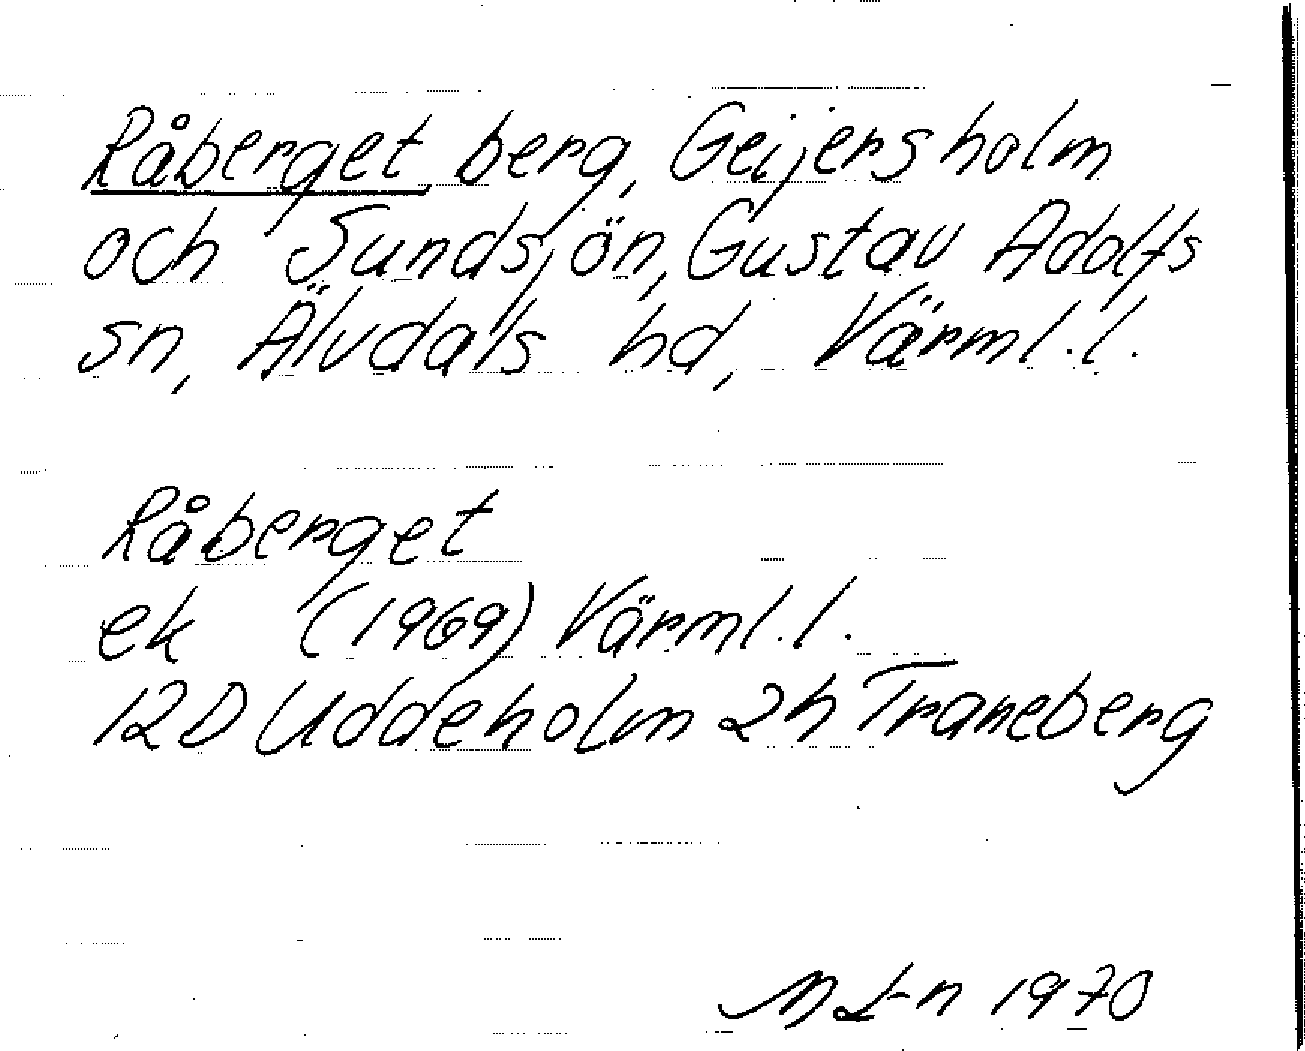 Råberget berg, Geijersholm
och Sundsjön, Gustav Adolfs
sn, Älvdals hd, Värml.l.
Råberget
ek (1969) Värml.l.
12D Uddeholm 2h Traneberg
M L-n 1970